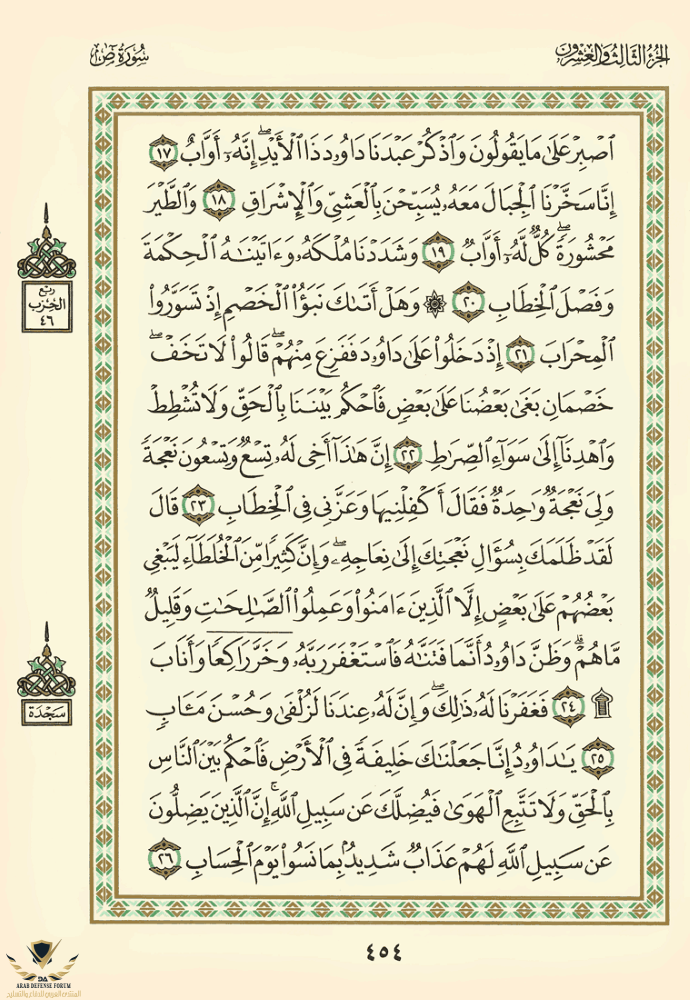 سُورَةُ صٓ
الجُزْءُ الثَّالِثُ وَالعِشْرُونَ
ٱصۡبِرۡ عَلَىٰ مَا يَقُولُونَ وَٱذۡكُرۡ عَبۡدَنَا دَاوُۥدَ ذَا ٱلۡأَيۡدِۖ إِنَّهُۥٓ أَوَّابٌ ١٧
إِنَّا سَخَّرۡنَا ٱلۡجِبَالَ مَعَهُۥ يُسَبِّحۡنَ بِٱلۡعَشِيِّ وَٱلۡإِشۡرَاقِ ١٨ وَٱلطَّيۡرَ
مَحۡشُورَةٗۖ كُلّٞ لَّهُۥٓ أَوَّابٞ ١٩ وَشَدَدۡنَا مُلۡكَهُۥ وَءَاتَيۡنَٰهُ ٱلۡحِكۡمَةَ
وَفَصۡلَ ٱلۡخِطَابِ ٢٠ ۞ وَهَلۡ أَتَىٰكَ نَبَؤُاْ ٱلۡخَصۡمِ إِذۡ تَسَوَّرُواْ
ٱلۡمِحۡرَابَ ٢١ إِذۡ دَخَلُواْ عَلَىٰ دَاوُۥدَ فَفَزِعَ مِنۡهُمۡۖ قَالُواْ لَا تَخَفۡۖ
خَصۡمَانِ بَغَىٰ بَعۡضُنَا عَلَىٰ بَعۡضٖ فَٱحۡكُم بَيۡنَنَا بِٱلۡحَقِّ وَلَا تُشۡطِطۡ
وَٱهۡدِنَآ إِلَىٰ سَوَآءِ ٱلصِّرَٰطِ ٢٢ إِنَّ هَٰذَآ أَخِي لَهُۥ تِسۡعٞ وَتِسۡعُونَ نَعۡجَةٗ
وَلِيَ نَعۡجَةٞ وَٰحِدَةٞ فَقَالَ أَكۡفِلۡنِيهَا وَعَزَّنِي فِي ٱلۡخِطَابِ ٢٣ قَالَ
لَقَدۡ ظَلَمَكَ بِسُؤَالِ نَعۡجَتِكَ إِلَىٰ نِعَاجِهِۦۖ وَإِنَّ كَثِيرٗا مِّنَ ٱلۡخُلَطَآءِ لَيَبۡغِي
بَعۡضُهُمۡ عَلَىٰ بَعۡضٍ إِلَّا ٱلَّذِينَ ءَامَنُواْ وَعَمِلُواْ ٱلصَّٰلِحَٰتِ وَقَلِيلٞ
مَّا هُمۡۗ وَظَنَّ دَاوُۥدُ أَنَّمَا فَتَنَّٰهُ فَٱسۡتَغۡفَرَ رَبَّهُۥ وَخَرَّۤ رَاكِعٗاۤ وَأَنَابَ
۩ ٢٤ فَغَفَرۡنَا لَهُۥ ذَٰلِكَۖ وَإِنَّ لَهُۥ عِندَنَا لَزُلۡفَىٰ وَحُسۡنَ مَـَٔابٖ
٢٥ يَٰدَاوُۥدُ إِنَّا جَعَلۡنَٰكَ خَلِيفَةٗ فِي ٱلۡأَرۡضِ فَٱحۡكُم بَيۡنَ ٱلنَّاسِ
بِٱلۡحَقِّ وَلَا تَتَّبِعِ ٱلۡهَوَىٰ فَيُضِلَّكَ عَن سَبِيلِ ٱللَّهِۚ إِنَّ ٱلَّذِينَ يَضِلُّونَ
عَن سَبِيلِ ٱللَّهِ لَهُمۡ عَذَابٞ شَدِيدُۢ بِمَا نَسُواْ يَوۡمَ ٱلۡحِسَابِ ٢٦
ربع
الحزب
٤٦
سجدة
٤٥٤
ARAB DEFENSE FORUM
المنتدى العربي للدفاع والتسليح